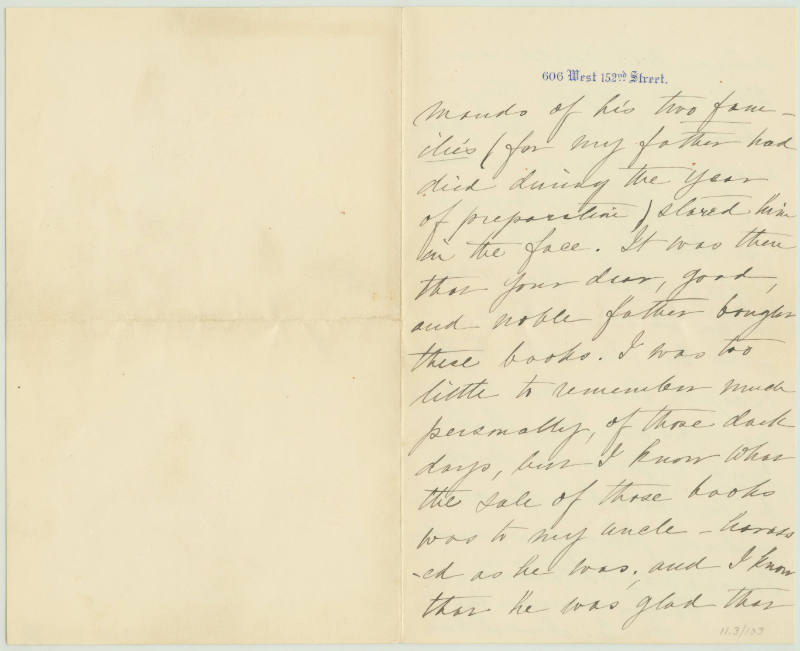 606 West 152nd Street.
mands of his two fam-
ilies (for my father had
died during the year
of preparation) stared him
in the face. It was then
that your dear, good,
and noble father bought
these books. I was too
little to remember much
personally, of those dark
days, but I know what
the sale of those books
was to my uncle - harass
-ed as he was, and I know
that he was glad that
11.3/103